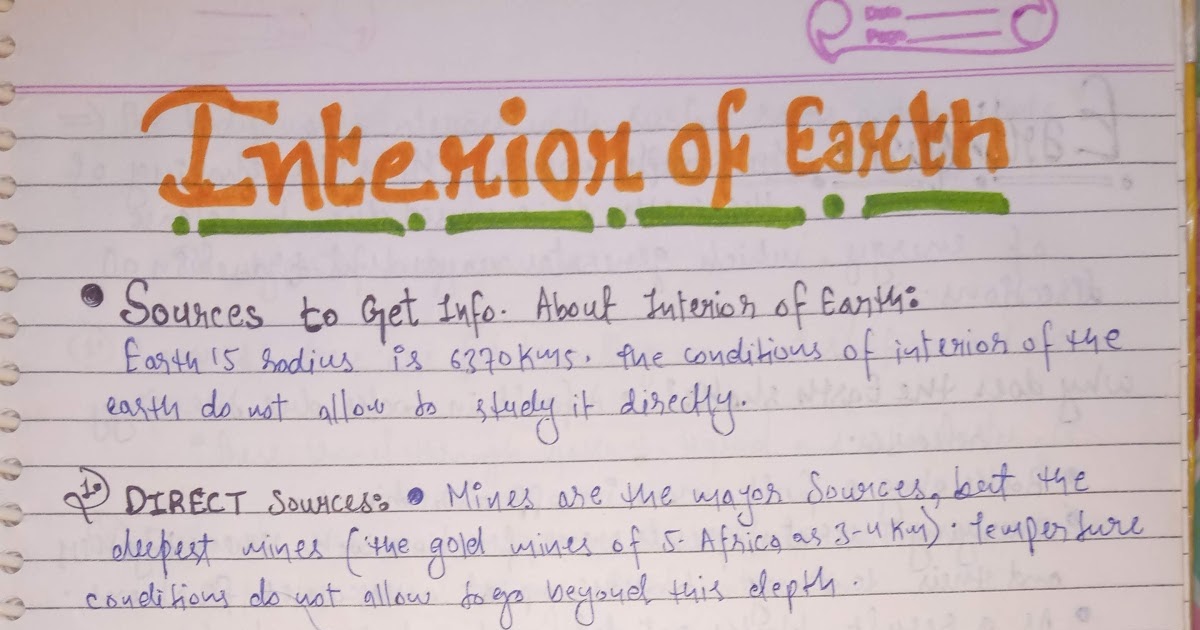 Date
Page
Interior of Earth
• Sources to Get Info. About Interior of Earth:
Earth's radius is 6370 Kms. The conditions of interior of the
earth do not allow to study it directly.
1. DIRECT Sources: • Mines are the major Sources, but the
deepest mines (the gold mines of S. Africa as 3-4 Km). temperture
conditions do not allow to go beyond this depth.